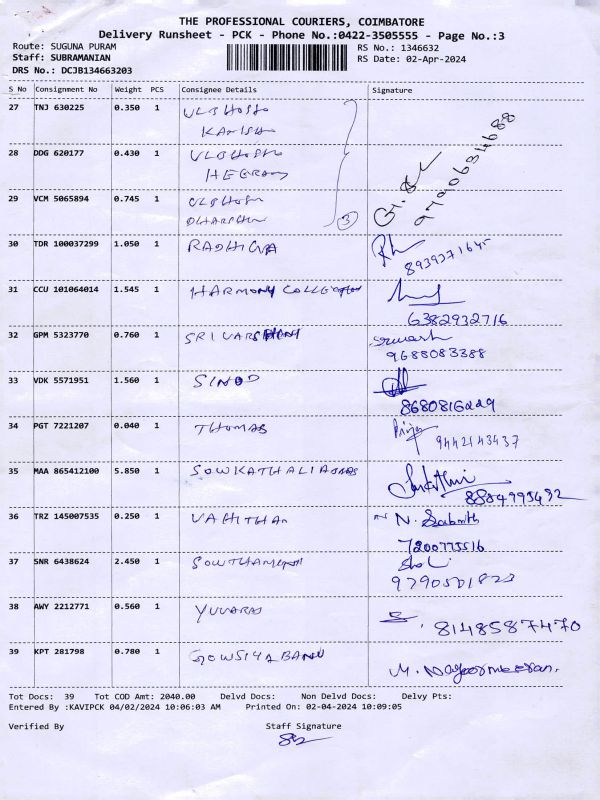 THE PROFESSIONAL COURIERS, COIMBATORE
Delivery Runsheet - PCK - Phone No.:0422-3505555 - Page No.:3
Route: SUGUNA PURAM
RS No.: 1346632
Staff: SUBRAMANIAN
RS Date: 02-Apr-2024
DRS No.: DCJB134663203
S No Consignment No Weight PCS Consignee Details Signature
27 TNJ 630225 0.350 1
28 DDG 620177 0.430 1
29 VCM 5065894 0.745 1
3
9790684688
30 TDR 100037299 1.050 1 RADHIKA
8939371645
31 CCU 101064014 1.545 1 HARMONY COLLECTION
6382932716
32 GPM 5323770 0.760 1 SRIVARSHINI
9688083388
33 VDK 5571951 1.560 1 SINOD
8680816229
34 PGT 7221207 0.040 1 THOMAS Priya
9442143437
35 MAA 865412100 5.850 1
8884993492
36 TRZ 145007535 0.250 1 VAHITHA N.
7200775516
37 SNR 6438624 2.450 1
9790501823
38 AWY 2212771 0.560 1 YUVARAJ
8148587470
39 KPT 281798 0.780 1 GOWSIYA BANU
Tot Docs: 39 Tot COD Amt: 2040.00 Delvd Docs: Non Delvd Docs: Delvy Pts:
Entered By :KAVIPCK 04/02/2024 10:06:03 AM Printed On: 02-04-2024 10:09:05
Verified By Staff Signature